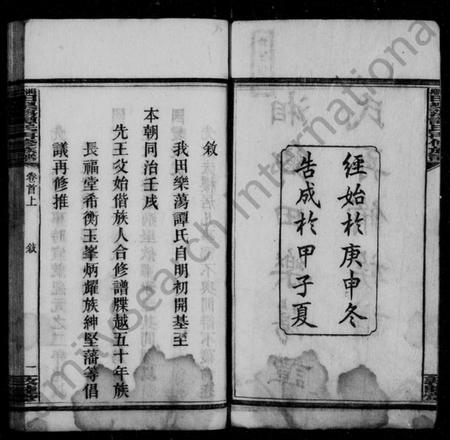 經始於庚申冬
告成於甲子夏
敘
我田樂蕩譚氏自明初開基至
本朝同治壬戌
先王父始偕族人合修譜牒越五十年族
長福堂希衡玉峯炳耀族紳堅藩等倡
議再修推
卷首上
敘
一
FamilySearch International